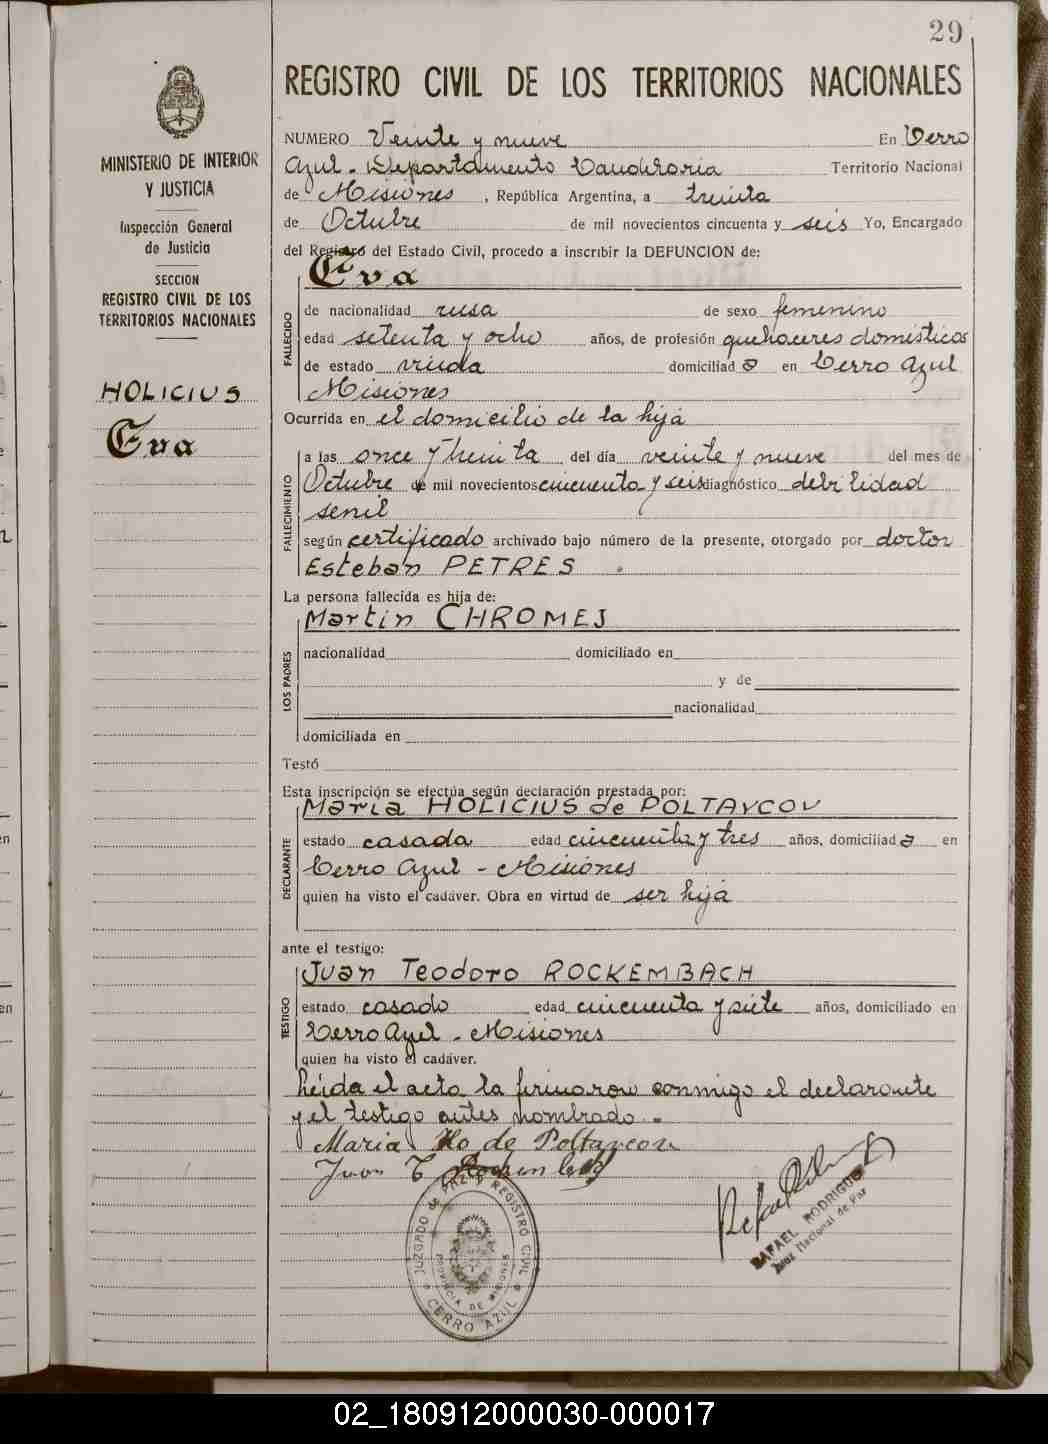 29
MINISTERIO DE INTERIOR
Y JUSTICIA
Inspección General
de Justicia
SECCION
REGISTRO CIVIL DE LOS
TERRITORIOS NACIONALES
HOLICIUS
Eva
REGISTRO CIVIL DE LOS TERRITORIOS NACIONALES
NUMERO Veinte y nueve En Cerro
Azul - Departamento Candelaria Territorio Nacional
de Misiones, República Argentina, a treinta
de Octubre de mil novecientos cincuenta y seis Yo, Encargado
del Registro del Estado Civil, procedo a inscribir la DEFUNCION de:
Eva
FALLECIDO
de nacionalidad rusa de sexo femenino
edad setenta y ocho años, de profesión quehaceres domésticos
de estado viuda domiciliad a en Cerro Azul
Misiones
Ocurrida en el domicilio de la hija
FALLECIMIENTO
a las once y treinta del día veinte y nueve del mes de
Octubre de mil novecientos cincuenta y seis diagnóstico debilidad
senil
según certificado archivado bajo número de la presente, otorgado por doctor
Esteban PETRES .
La persona fallecida es hija de:
Martin CHROMEJ
LOS PADRES
nacionalidad domiciliado en
y de
nacionalidad
domiciliada en
Testó
Esta inscripción se efectúa según declaración prestada por:
Maria HOLICIUS de POLTAVCOV
DECLARANTE
estado casada edad cincuenta y tres años, domiciliad a en
Cerro Azul - Misiones
quien ha visto el cadáver. Obra en virtud de ser hija
ante el testigo:
Juan Teodoro ROCKEMBACH
TESTIGO
estado casado edad cincuenta y siete años, domiciliado en
Cerro Azul - Misiones
quien ha visto el cadáver.
leída el acta la firmaron conmigo el declarante
y el testigo antes nombrado.-
Maria Ho de Poltavcov
Juan T
JUZGADO de PAZ y REGISTRO CIVIL
PROVINCIA DE MISIONES
CERRO AZUL
RAFAEL RODRIGUE
Juez Nacional de Paz
02_180912000030-000017